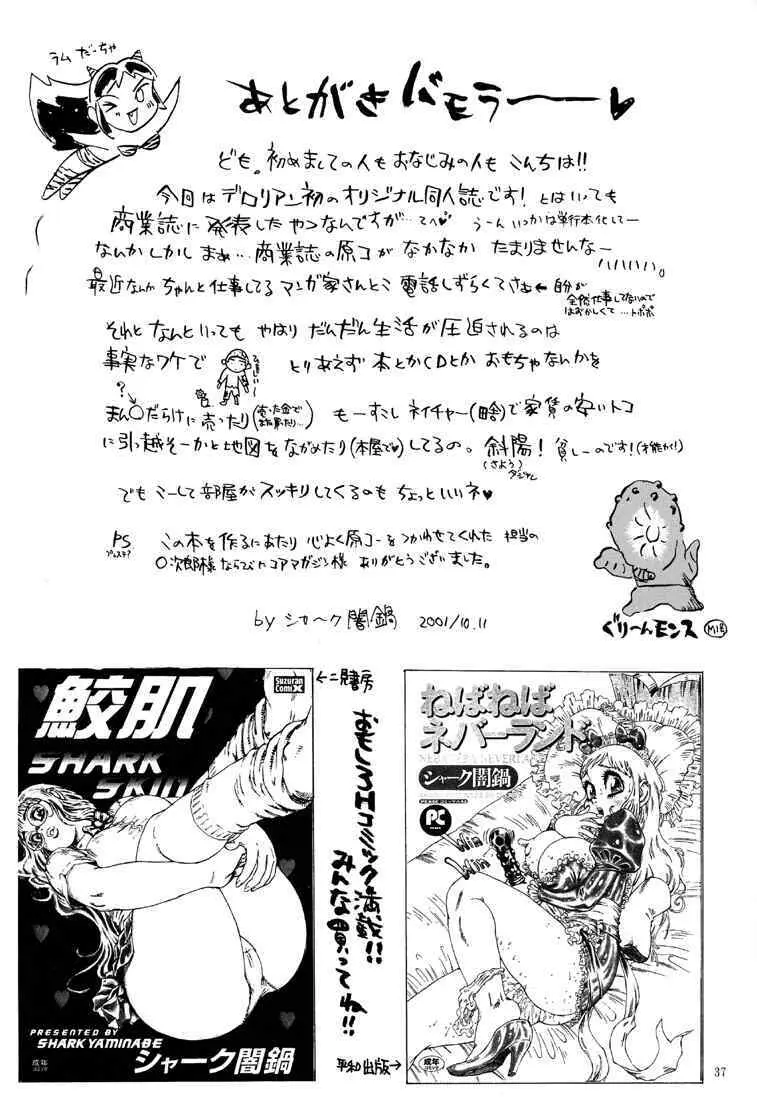 ラムだっちゃ
あとがきバモラーー♥
ども。初めましての人もおなじみの人も こんちは!!
今回はデロリアン初のオリジナル同人誌です! とはいっても
商業誌に発表したやつなんですが…てへ♥ うーん いつかは単行本化してー
なんかしかし まぁ…商業誌の原コが なかなか たまりませんなー
最近なんか ちゃんと仕事してる マンガ家さんとこ 電話しずらくてさぁ ← 自分が
全然仕事してないので
はずかしくて…トホホ
それと なんといっても やはり だんだん生活が圧迫されるのは
事実なワケで とりあえず 本とかCDとか おもちゃなんかを
?
まん○だらけに売ったり(売った金で
また買ったり…) もーすこし ネイチャー(暗)で家賃の安いトコ
に引っ越そーかと地図をながめたり(本屋で♥)してるの。 斜陽! 貧しーのです!(才能が!)
(さよう)
でも こーして部屋が スッキリしてくるのも ちょっといいネ♥
PS この本を作るにあたり 心よく原コーを つかわせてくれた 担当の
プレステ?
○次郎様 ならびに コアマガジン様 ありがとうございました。
by シャーク闇鍋 2001/10.11
ぐりーんモンス
M1号
←二見書房
Suzuran
ComiX
鮫肌
SHARK
SKIN
PRESENTED BY
SHARK YAMINABE
シャーク闇鍋
成年
コミック
おもしろHコミック満載!!
みんな買ってね!!
平和出版→
ねばねば
ネバーランド
シャーク闇鍋
PC
Win
Win
成年
コミック
37